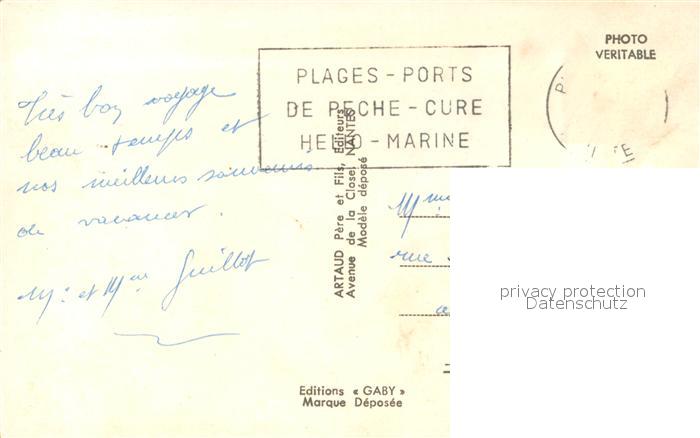 PHOTO
VERITABLE
PLAGES - PORTS
DE PECHE - CURE
HELIO - MARINE
Très bon voyage
beau temps et
nos meilleurs souvenirs
de vacances.
Mr et Mme Guillot
ARTAUD Père et Fils, Editeurs
Avenue de la Close, NANTES
Modèle déposé
rue
privacy protection
Datenschutz
Editions « GABY »
Marque Déposée